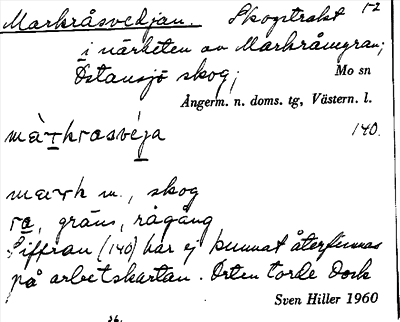 Markråsvedjan. Skogstrakt 1-2
i närheten av Markråmyran;
Östansjö skog; Mo sn
Ångerm. n. doms. tg, Västern. l.
màrkrasvéja 140.
mark m., skog
ra, gräns, rågång
Siffran (140) har ej kunnat återfinnas
på arbetskartan. Orten torde dock
Sven Hiller 1960